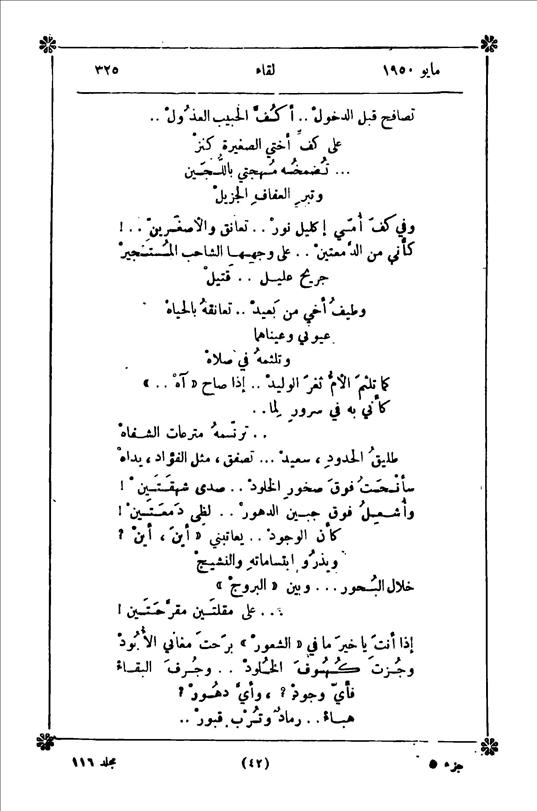 مايو ١٩٥٠ لقاء ٣٢٥
تصافح قبل الدخولْ .. أكفَّ الحبيب العذولْ ..
على كفِّ أختي الصغيرة كنزْ
... تُضمخُه مُهجتي باللُّجَين
وتبرِ العفافِ الجزيلْ
وفي كفّ أُمّي إكليل نورْ .. تعانق والأصغَرينِ .. !
كأني من الدَّمعتينْ .. على وجهها الشاحب المُستَجيرْ
جريح عليل .. قَتيلْ
وطيفُ أخي من بَعيدْ .. تعانقهُ بالحياهْ
عيوني وعيناهما
وتلثمهُ في صلاهْ
كما تلثم الأمُّ ثغرَ الوليدْ .. إذا صاح « آهْ .. »
كأني به في سرورٍ لِما ..
.. ترنّسمهُ مترعات الشفاهْ
طليقُ الحدودِ ، سعيدْ ... تصفق ، مثل الفؤاد ، يداهْ
سأنْحَتُ فوقَ صخورِ الخلودْ .. صدى شهقَتَينْ !
وأُشعِلُ فوق جبينِ الدهورْ .. لظى دَمعَتَينْ !
كأن الوجودْ .. يعاتبني « أينَ ، أينْ ؟
ويذرُو إبتساماتهِ والنشيجْ
خلال البُحور ... وبين « البروجْ »
... على مقلتَين مقرَّحتَين !
إذا أنتَ يا خيرَ ما في « الشعورْ » برَحتَ مغاني الأُبُودْ
وجُزتَ كُهُوفَ الخلودْ .. وجُرفَ البقاءْ
فأيّ وجودْ ؟ ، وأيَّ دهُورْ ؟
هباءْ .. رمادٌ وتُرْب قبورْ ..
جزء ٥ (٤٢) مجلد ١١٦